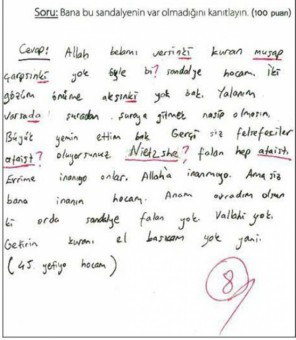 Soru: Bana bu sandalyenin var olmadığını kanıtlayın. (100 puan)
Cevap: Allah belamı versinki kuran muşap
çarpsınki yok öyle bi? sandalye hocam. iki
gözüm önüme akşınki yok bak. Yalanım
varsada şuradan şuraya gitmek nasip olmasın.
Büyük yemin ettim bak. Gerçi siz felsefeciler
ataist? oluyorsunuz. Nietzshe? falan hep ataist.
Evrime inanıyo onlar. Allaha inanmıyo. Ama siz
bana inanın hocam. Anam avradım olsun
ki orda sandalye falan yok. Vallahi yok.
Getirin kuranı el basıcam yok yani.
(45 yetiyo hocam)
8